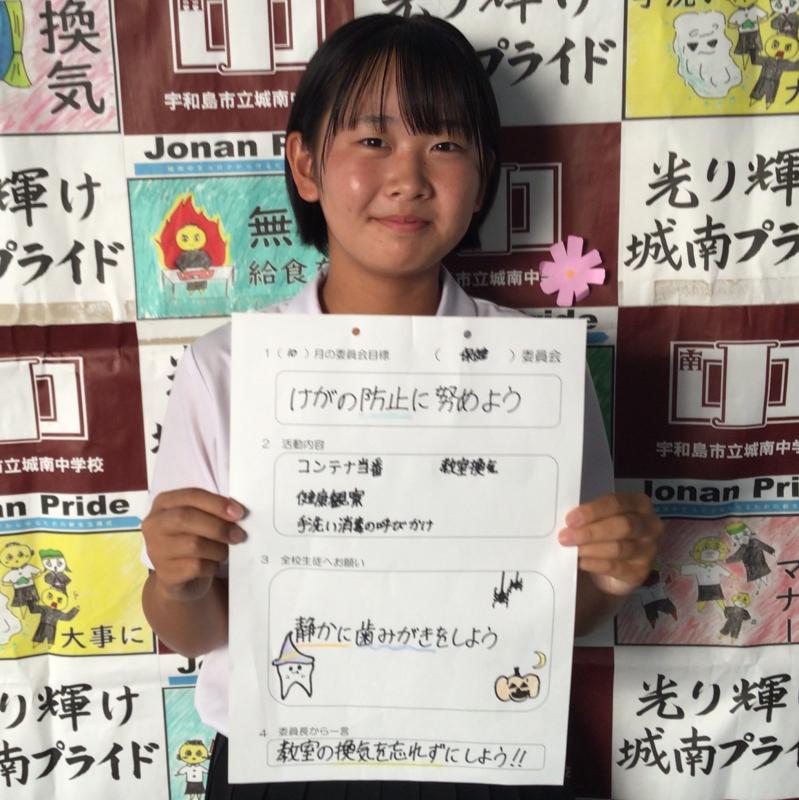 換気
宇和島市立城南中
光り輝け
プライド
手洗い
Jonan P
無
給食
輝け
プライド
光り輝
城南プラ
城南中
1（10）月の委員会目標 （保健）委員会
けがの防止に努めよう
2 活動内容
コンテナ当番 教室換気
健康観察
手洗い消毒の呼びかけ
3 全校生徒へお願い
静かに歯みがきをしよう
4 委員長から一言
教室の換気を忘れずにしよう!!
市立城南中学校
南
宇和島市立城南中学校
onan Pride
Jonan Pri
大事に
マナー
光り輝け
南プライド
光り輝
城南プラ